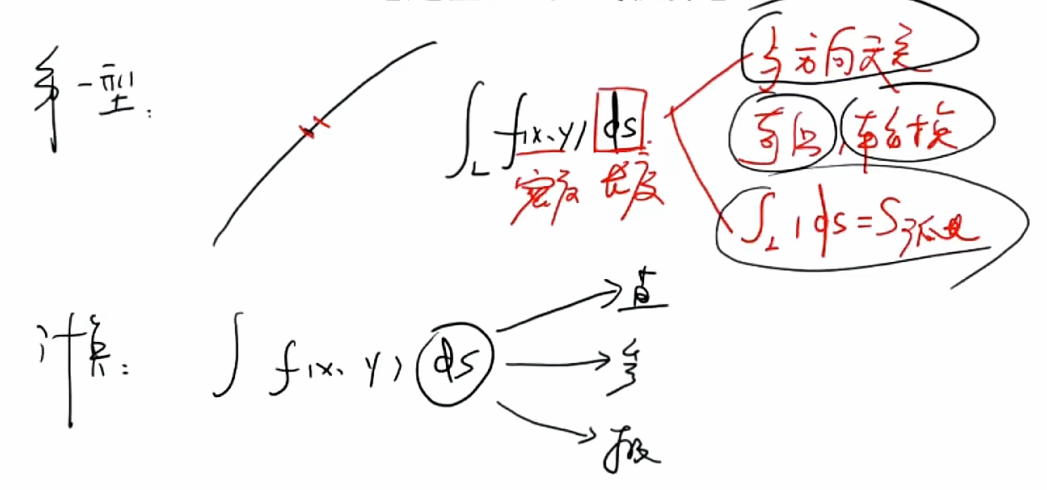 第一型:
∫_L f(x、y) ds
密度 长度
与方向无关
奇偶 轮换
∫_L 1 ds = S弧长
计算: ∫ f(x、y) ds
直
参
极